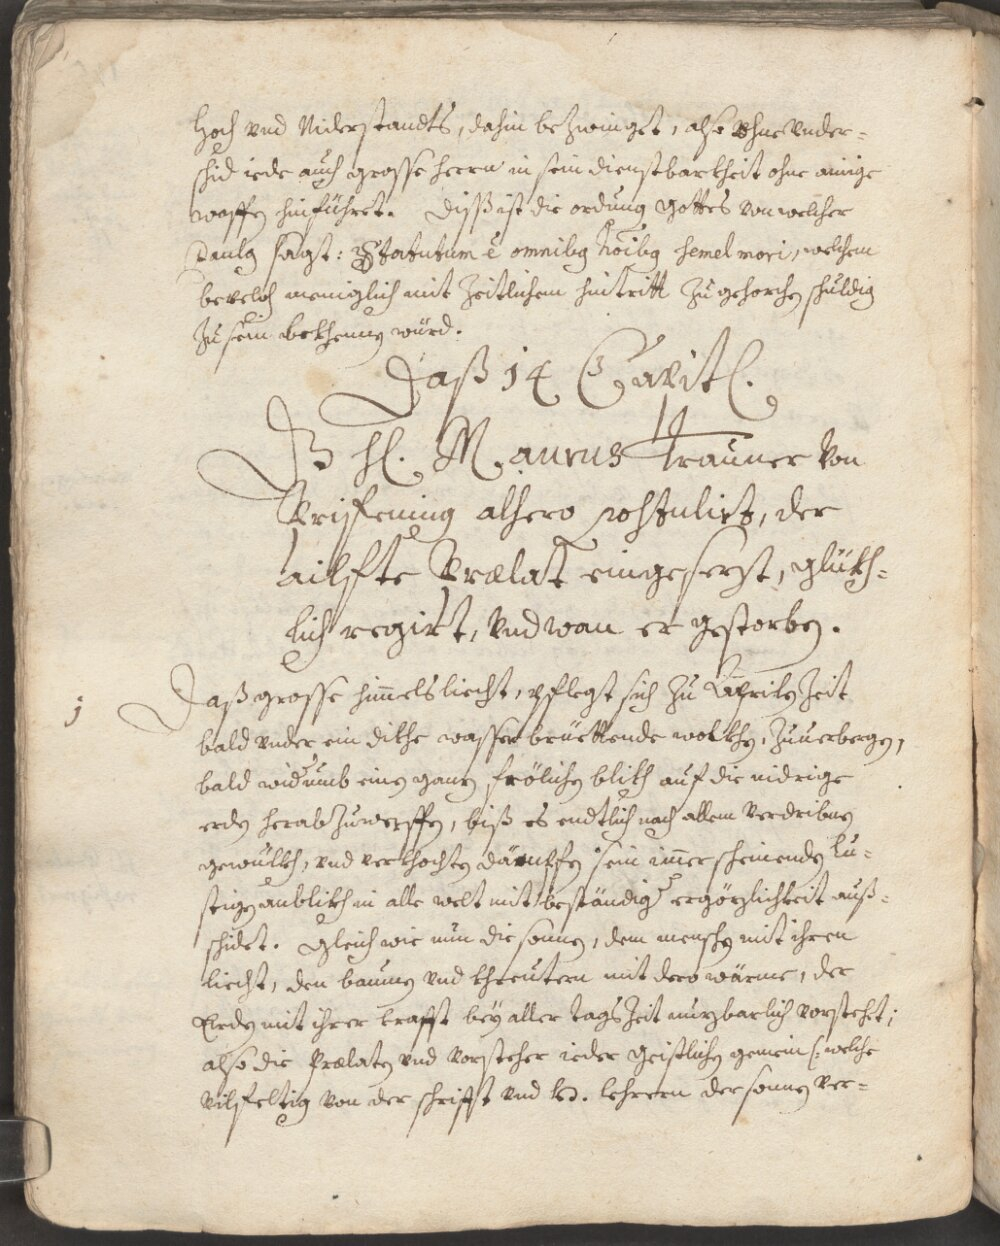 Hoch vnd Niderstandts, dahin bezwinget, also ohne vnder=
schid iede auch grosse herrn in sein dienstbarkheit ohne ainige
waffen hinführet. Diss ist die ordnung Gottes von welcher
Paulus sagt: Statutum ē omnibus hōibus semel mori, welchem
bevelch meniglich mit Zeitlichem hintritt zu gehorchen schuldig
zu sein bekhennen würd.
Daß 14 Capitl.
Maurus Trauner von
Prifening alhero postulirt, der
ailfte Prælat eingesezt, glükh=
lich regirt, vnd wan er gestorben.
1 Daß grosse him̄els liecht, pflegt sich zu Aprilen Zeit
bald vnder ein dikhe wasser brüettende wolkhen, zuuerbergen,
bald widerumb einen ganz frölichen blikh auf die nidrige
erden herab zuwerffen, biß es endtlich nach allem verdribnen
gewülkh, vnd verkhochten dämpffen sein im̄er scheinenden lu=
stigen anblikh in alle welt mit beständiger ergözlichkeit auß=
schidet. Gleich wie nun die sonnen, dem menschen mit ihren
liecht, den baumen vnd khreutern mit dero wärme, der
Erden mit ihrer krafft bey aller tags Zeit nuzbarlich vorstehet;
also die Prælaten vnd Vorsteher ieder Geistlichen gemein (: welche
vilfeltig von der schrifft vnd H. lehrern der sonnen ver=